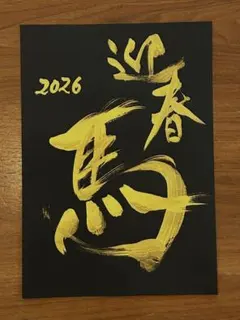 迎春
2026
馬